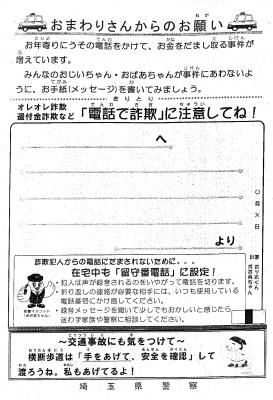 おまわりさんからのお願い
お年寄りにうその電話をかけて、お金をだまし取る事件が
増えています。
みんなのおじいちゃん・おばあちゃんが事件にあわないよ
うに、お手紙(メッセージ)を書いてみましょう。
きりとり
オレオレ詐欺
還付金詐欺など
「電話で詐欺」に注意してね!
へ
より
〇月×日
詐欺犯人からの電話にだまされないために・・・
在宅中も「留守番電話」に設定!
・犯人は声が録音されるのをいやがって電話を切ります。
・折り返しの連絡が必要な相手には、いつも使用している
電話番号にかけ直してください。
・録音メッセージを聞いて少しでもおかしいと感じたら
迷わず家族や警察に相談してください。
~交通事故にも気をつけて~
横断歩道は「手をあげて、安全を確認」して
渡ろうね。私もあげてるよ!
埼玉県警察